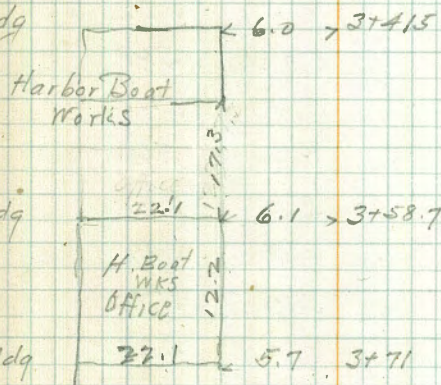 dg 6.0 > 3+41.5
Harbor Boat
Works
17.3
dg 22.1 6.1 > 3+58.7
H. Boat
WKS
Office
12.2
ldg 22.1 5.7 3+71